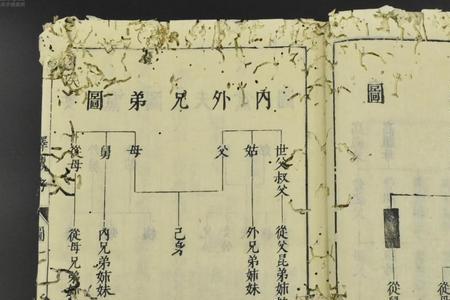 圖
從
內外兄弟圖
世父叔父
從父昆弟姊妹
姑
外兄弟姊妹
父
己身
母
舅
內兄弟姊妹
從母
從母兄弟姊妹
圖